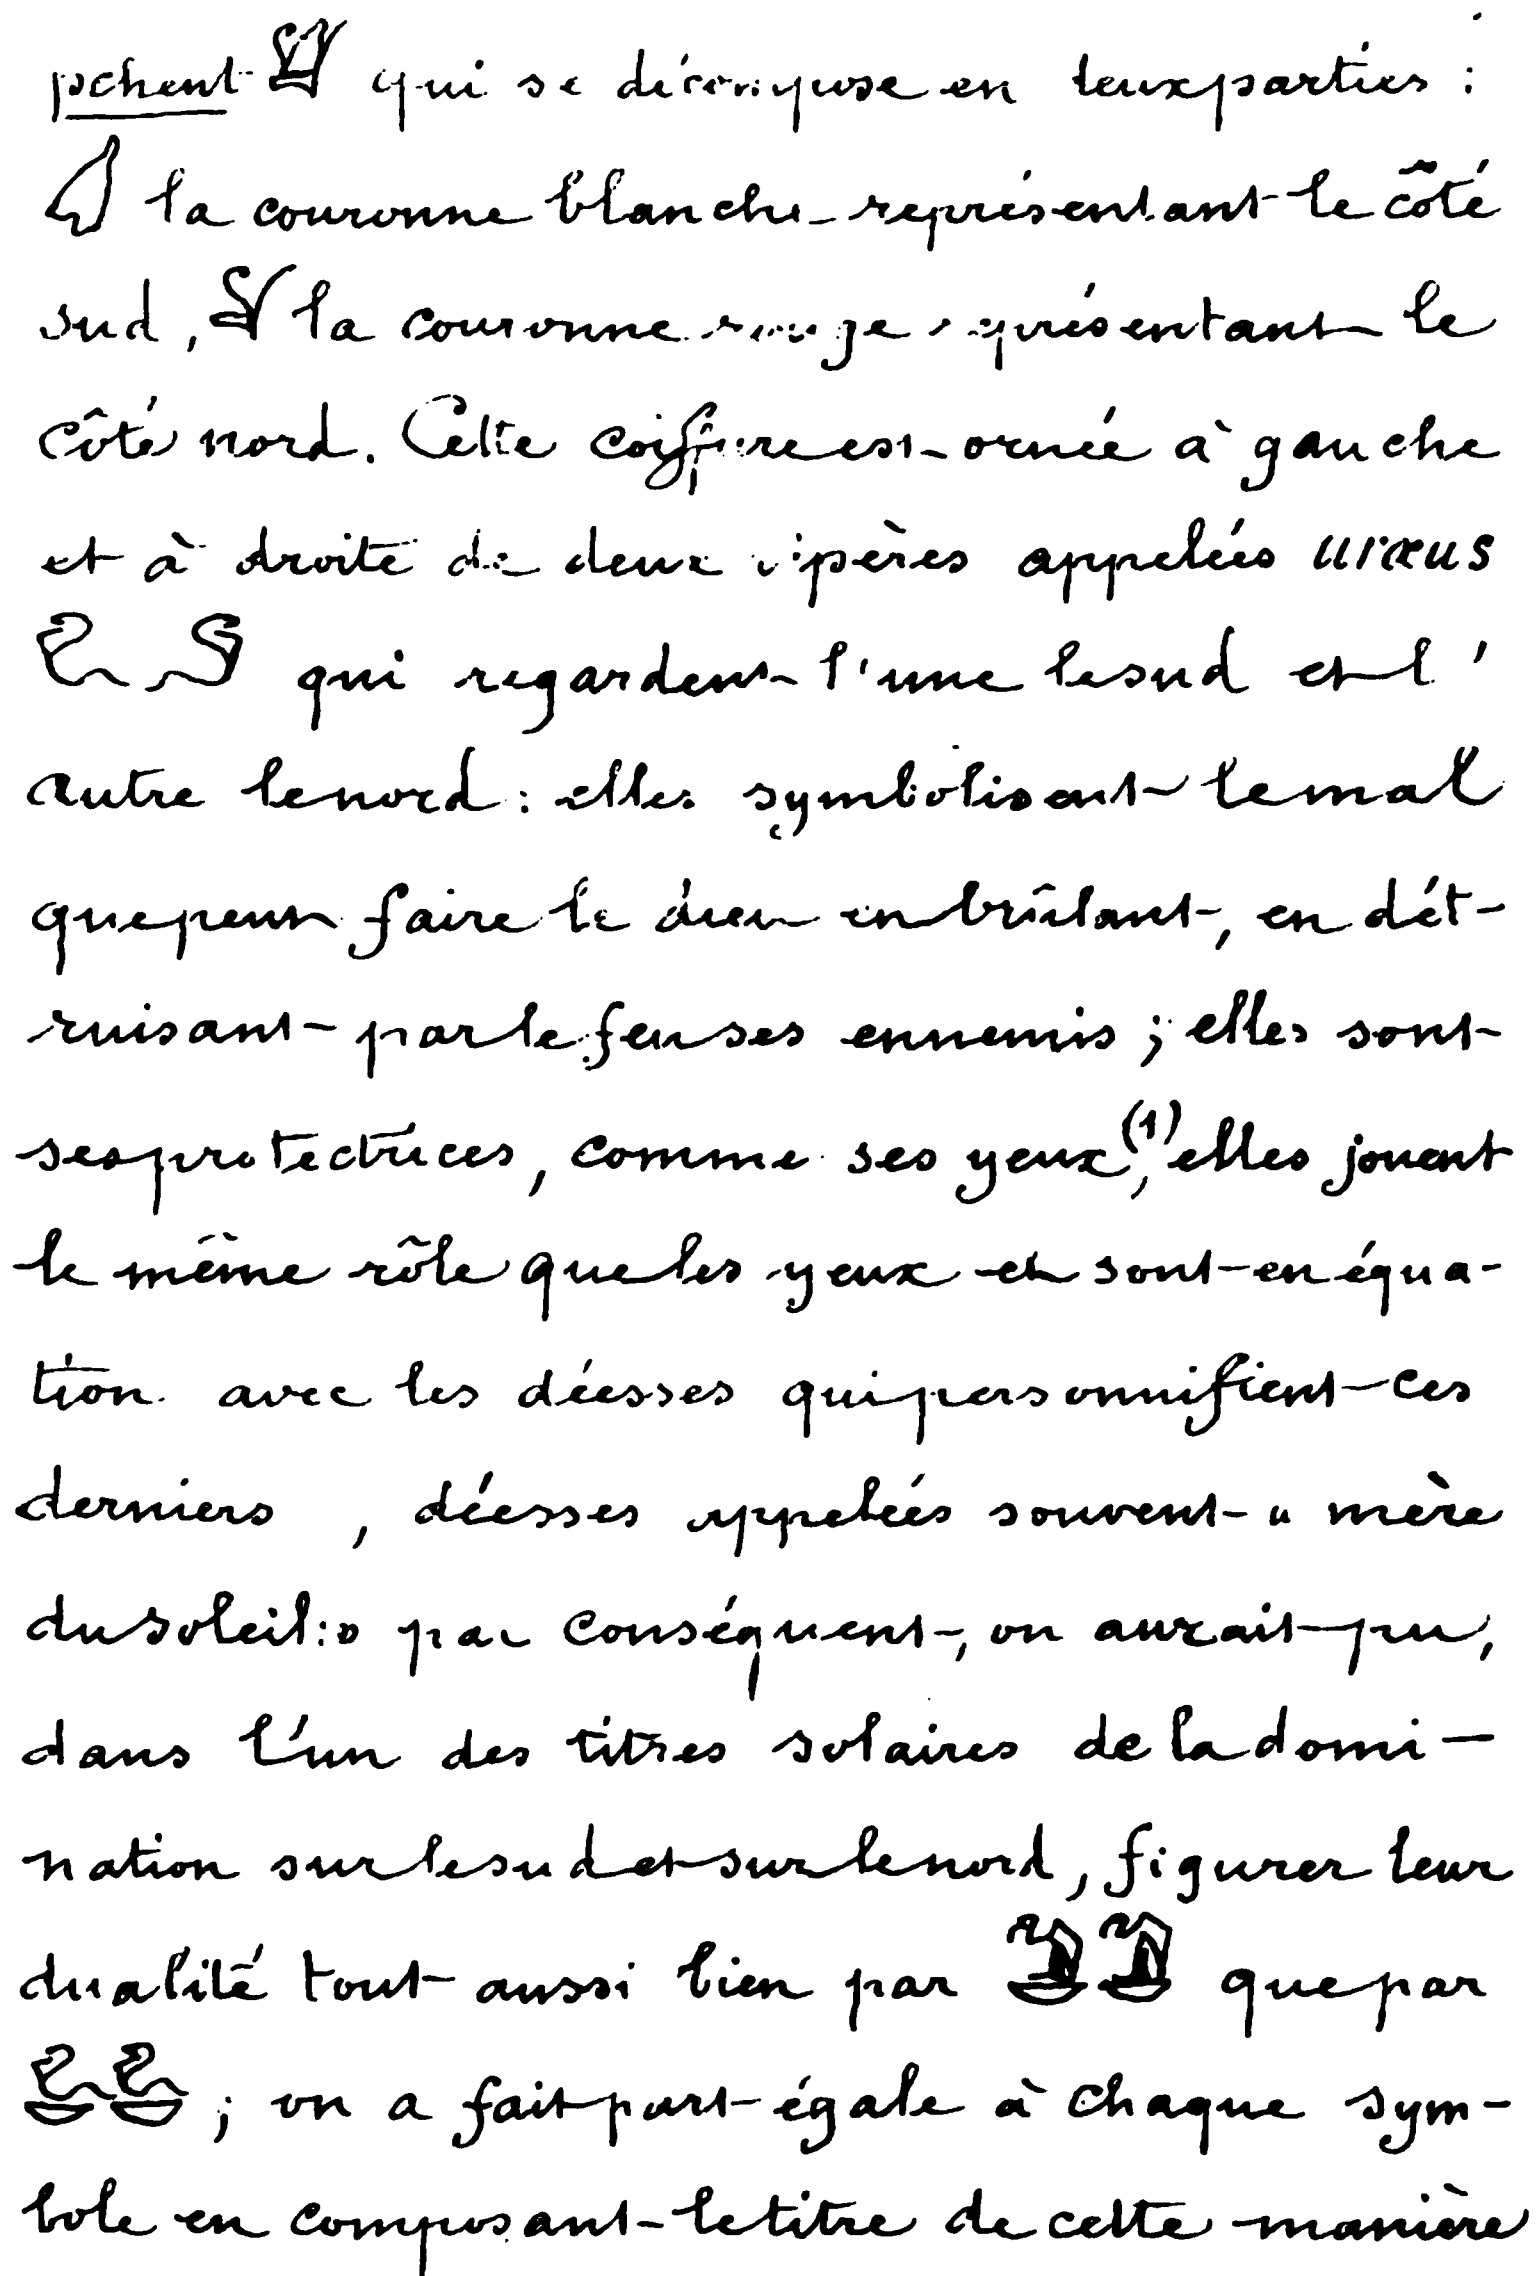 pchent 𓋖 qui se décompose en deux parties :
𓋑 la couronne blanche représentant le côté
sud, 𓋔 la couronne rouge représentant le
côté nord. Cette coiffure est ornée à gauche
et à droite de deux vipères appelées uræus
qui regardent l'une le sud et l'
autre le nord : elles symbolisent le mal
que peut faire le dieu en brûlant, en dét-
ruisant par le feu ses ennemis ; elles sont
ses protectrices, comme ses yeux (1), elles jouent
le même rôle que les yeux et sont en équa-
tion avec les déesses qui personnifient ces
derniers , déesses appelées souvent « mère
du soleil :» par conséquent, on aurait pu,
dans l'un des titres solaires de la domi-
nation sur le sud et sur le nord, figurer leur
dualité tout aussi bien par 𓅒𓅒 que par
𓆗𓆗 ; on a fait part égale à chaque sym-
bole en composant le titre de cette manière